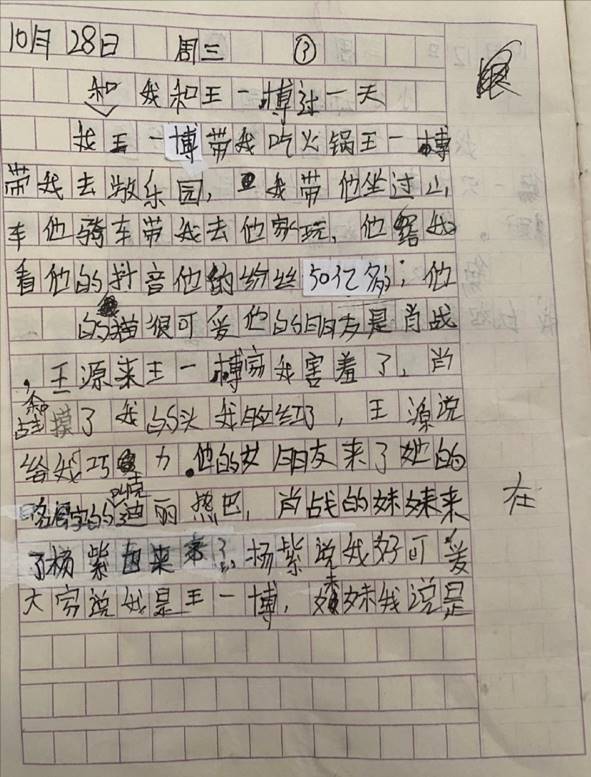 10月28日 周三 ③
和 我和王一博过一天
我王一博带我吃火锅王一博
带我去游乐园，我带他坐过山
车他骑车带我去他家玩，他给我
看他的抖音他的粉丝50亿多；他
的猫很可爱他的朋友是肖战
，王源来王一博家我害羞了，肖
战摸了我的头我脸红了，王源说
给我巧克力。他的女朋友来了她的
名字的迪丽热巴，肖战的妹妹来
了杨紫也来来了，杨紫说我好可爱
大家说我是王一博，妹妹我说是
在